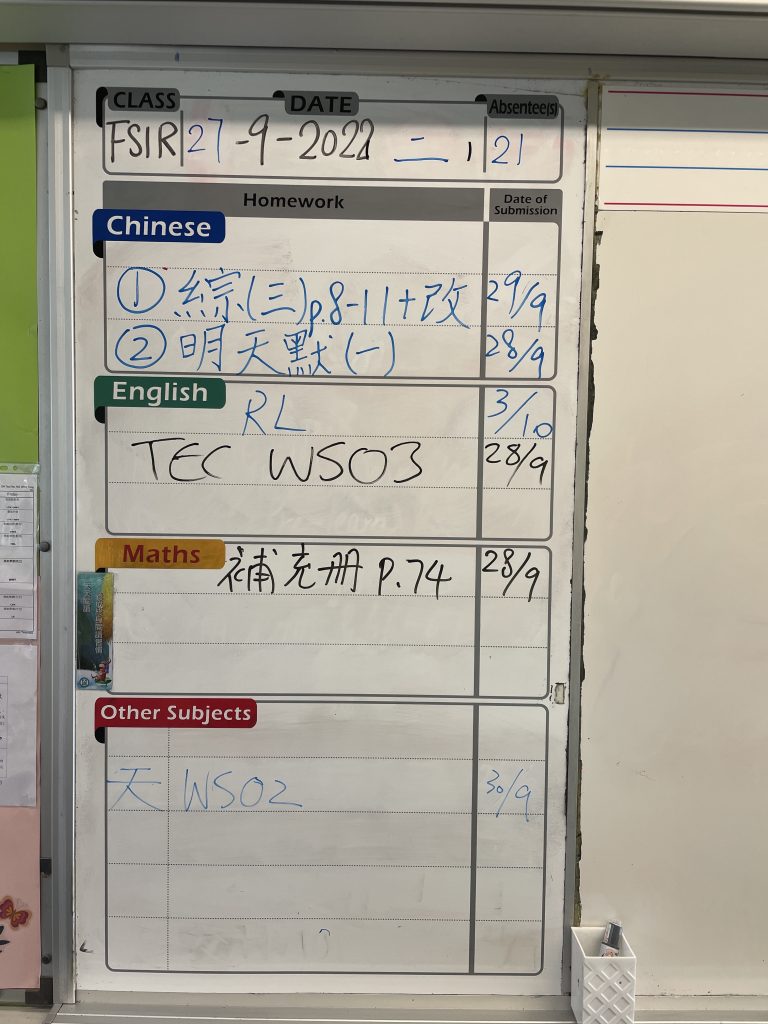 CLASS DATE Absentee(s)
27-9-2022 二 21
Homework Date of Submission
Chinese
① 綜(三)p.8-11+改 29/9
② 明天默(一) 28/9
English
RL 3/10
TEC WS03 28/9
Maths 補充册 P.74 28/9
Other Subjects
天 WS02 30/9